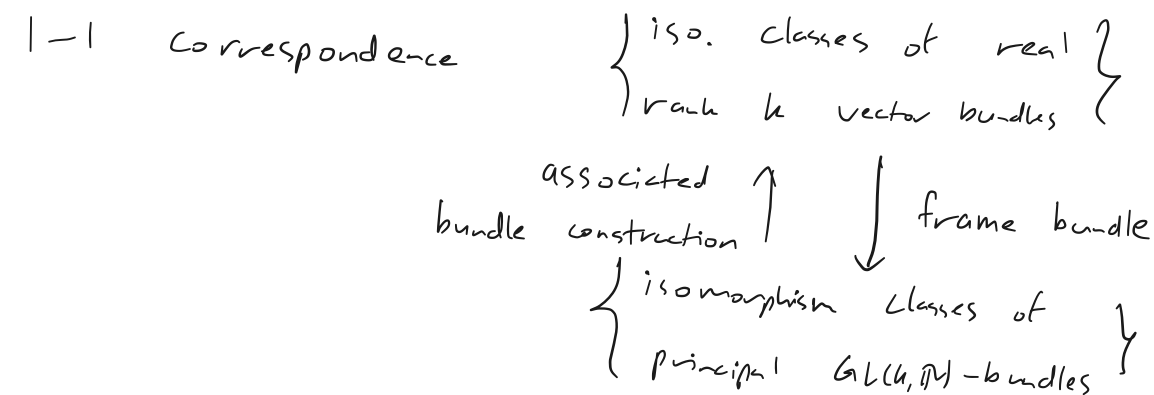 1-1 correspondence { iso. classes of real
rank k vector bundles }
associated
bundle construction ↑ ↓ frame bundle
{ isomorphism classes of
principal GL(k,ℝ)-bundles }